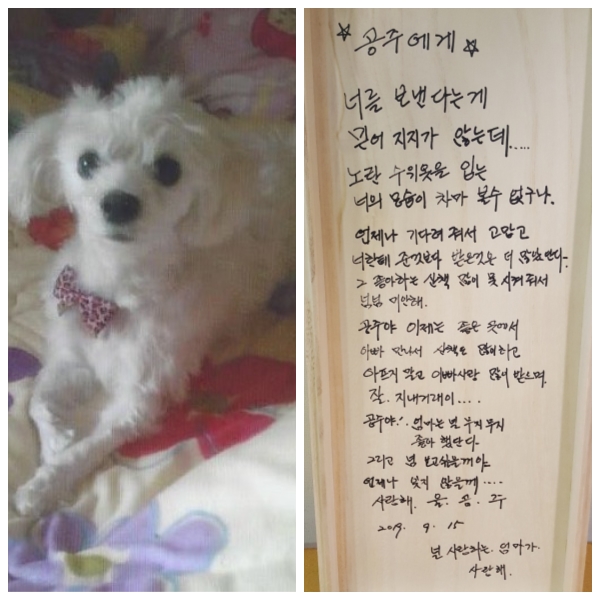 ☆ 공주에게 ☆
너를 보낸다는게
믿어 지지가 않는데.....
노란 수의옷을 입는
너의 모습이 차마 볼수 없구나.
언제나 기다려 줘서 고맙고
너한해 준것보다 받은것은 더 많았단다.
그 좋아하는 산책 많이 못 시켜 줘서
넘넘 미안해.
공주야 이제는 좋은 곳에서
아빠 만나서 산책도 많이하고
아프지 말고 아빠사랑 많이 받으며
잘. 지내거래이....
공주야! 엄마는 널 무지무지
좋아 했단다.
그리고 넘 보고싶을꺼야.
언제나 잊지 않을께....
사랑해. 울. 공. 주
2019. 9. 15
널 사랑하는. 엄마가.
사랑해.